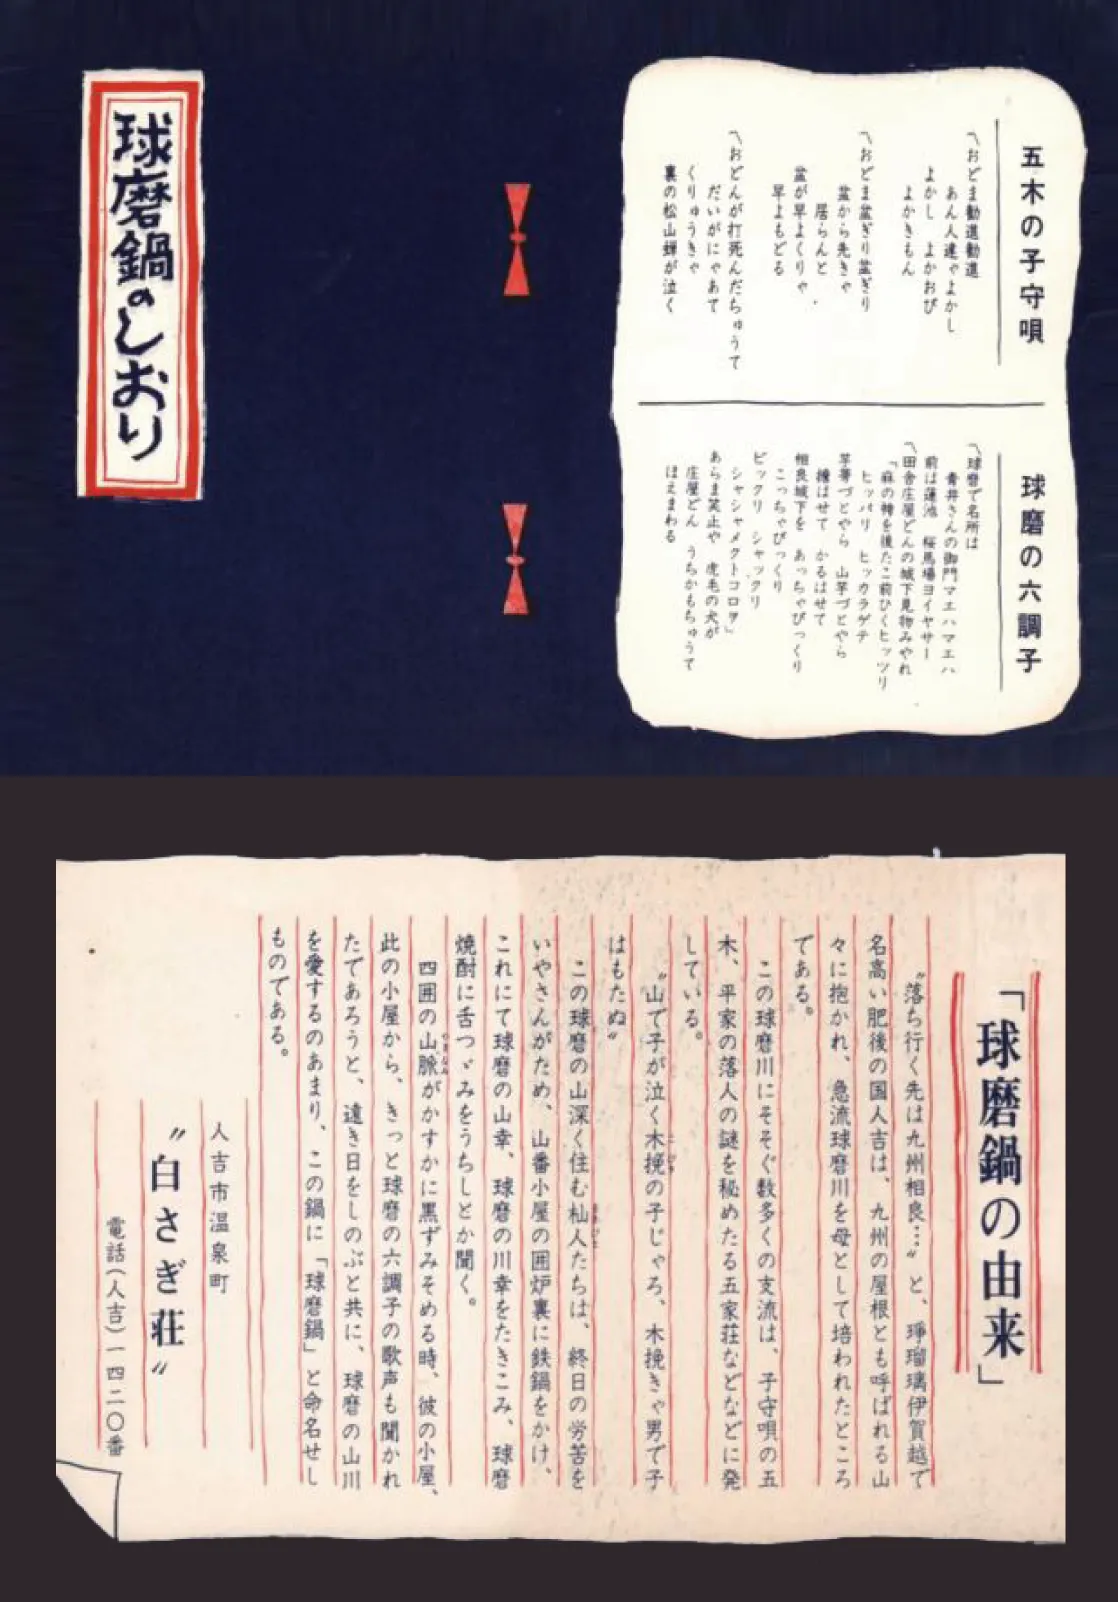 五木の子守唄
〽おどま勧進勧進
あん人達ゃよかし
よかし　よかおび
よかきもん
〽おどま盆ぎり盆ぎり
盆から先きゃ
居らんと
盆が早よくりゃ
早よもどる
〽おどんが打死んだちゅうて
だいがにゃあて
くりゅうきゃ
裏の松山蝉が泣く
球磨の六調子
〽球磨で名所は
青井さんの御門マエハマエハ
前は蓮池　桜馬場ヨイヤサー
〽田舎庄屋どんの城下見物みやれ
「麻の袴を後たこ前ひくヒッツリ
ヒッパリ　ヒッカラゲテ
芋帯づとやら　山芋づとやら
擔はせて　かるはせて
相良城下を　あっちゃびっくり
こっちゃびっくり
ビックリ　シャックリ
シャシャメクトコロヲ」
あらま笑止や　虎毛の犬が
庄屋どん　うちかもちゅうて
ほえまわる
球磨鍋のしおり
「球磨鍋の由来」
〝落ち行く先は九州相良…〟と、琤瑠璃伊賀越で
名高い肥後の国人吉は、九州の屋根とも呼ばれる山
々に抱かれ、急流球磨川を母として培われたところ
である。
この球磨川にそそぐ数多くの支流は、子守唄の五
木、平家の落人の謎を秘めたる五家荘などなどに発
している。
〝山で子が泣く木挽の子じゃろ、木挽きゃ男で子
はもたぬ〟
この球磨の山深く住む杣人たちは、終日の労苦を
いやさんがため、山番小屋の囲炉裏に鉄鍋をかけ、
これにて球磨の山幸、球磨の川幸をたきこみ、球磨
焼酎に舌つゞみをうちしとか聞く。
四囲の山脈がかすかに黒ずみそめる時、彼の小屋、
此の小屋から、きっと球磨の六調子の歌声も聞かれ
たであろうと、遠き日をしのぶと共に、球磨の山川
を愛するのあまり、この鍋に「球磨鍋」と命名せし
ものである。
人吉市温泉町
〝白さぎ荘〟
電話（人吉）一四二〇番